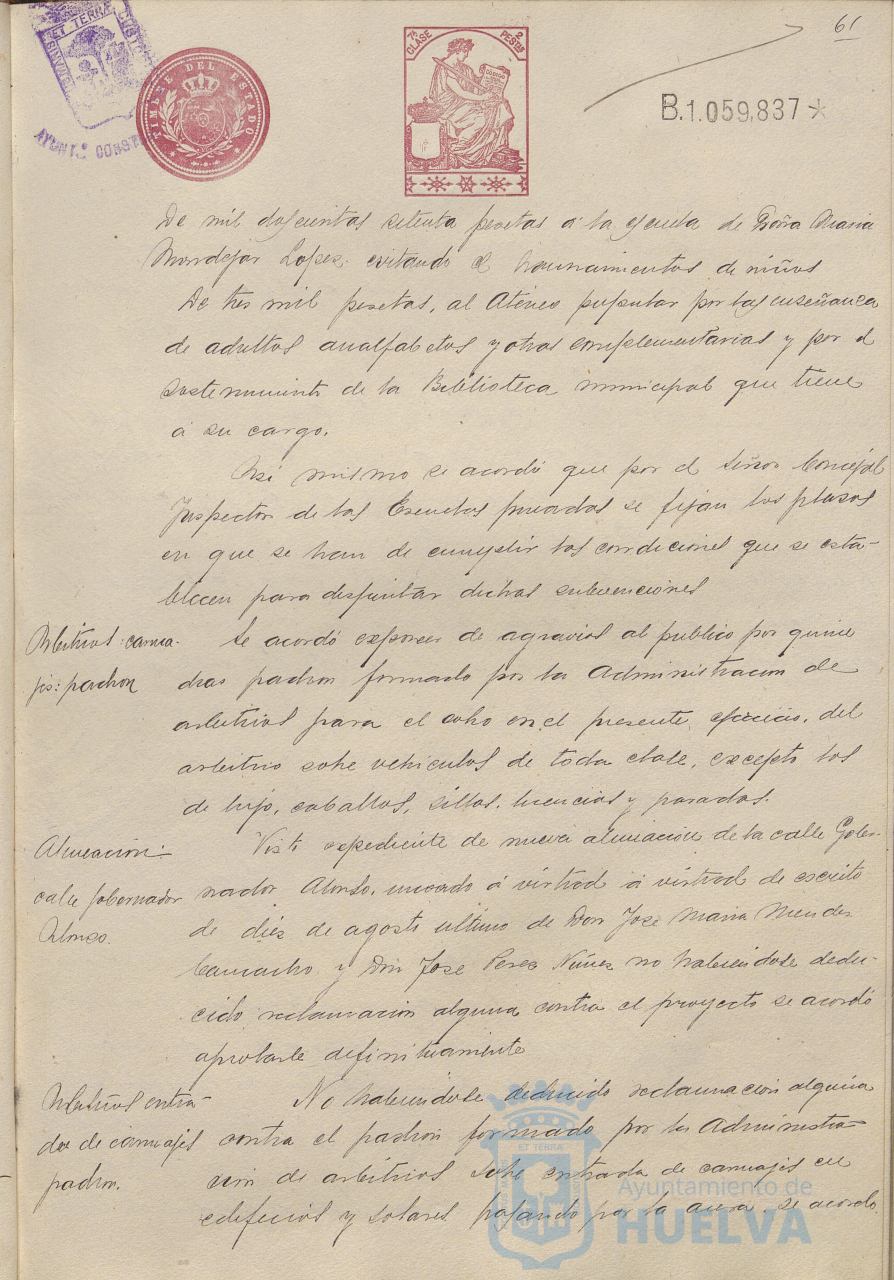 61
ET TERRÆ CUSTO
AYUNT.º CONST
TIMBRE DEL ESTADO
7ª CLASE 2 PESTAS
B.1.059,837*
De mil doscientas setenta pesetas á la escuela de Doña Maria
Mondejar Lopez: evitando el hacinamientos de niños
De tres mil pesetas, al Ateneo popular por las enseñanza
de adultos analfabetos y otras complementarias y por el
sostenimiento de la Biblioteca municipal que tiene
á su cargo.
Así mismo se acordó que por el señor Concejal
Inspector de las Escuelas privadas se fijan los plasos
en que se han de cumplir las condiciones que se esta-
blecen para disfrutar dichas subvenciones
Arbitrios: carrua-
jes: padron
Se acordó exponer de agravios al publico por quince
dias padron formado por la Administracion de
arbitrios para el cobro en el presente ejercicio, del
arbitrio sobre vehiculos de toda clase, excepto los
de lujo, caballos, sillas, licencias y paradas.
Alineación:
calle Gobernador
Alonso.
Visto expediente de nueva alineación de la calle Gober-
nador Alonso, incoado á virtud á virtud de escrito
de diez de agosto último de Don Jose Maria Mendez
Camacho y Don Jose Perez Nuñez no habiendose dedu-
cido reclamación alguna contra el proyecto se acordó
aprobarle definitivamente
Arbitrios entra-
das de carruajes
padron.
No habiendose deducido reclamación alguna
contra el padron formado por la Administra-
ción de arbitrios sobre entrada de carruajes en
edificios y solares pasando por la acera, se acordo
ET TERRA
Ayuntamiento de
HUELVA